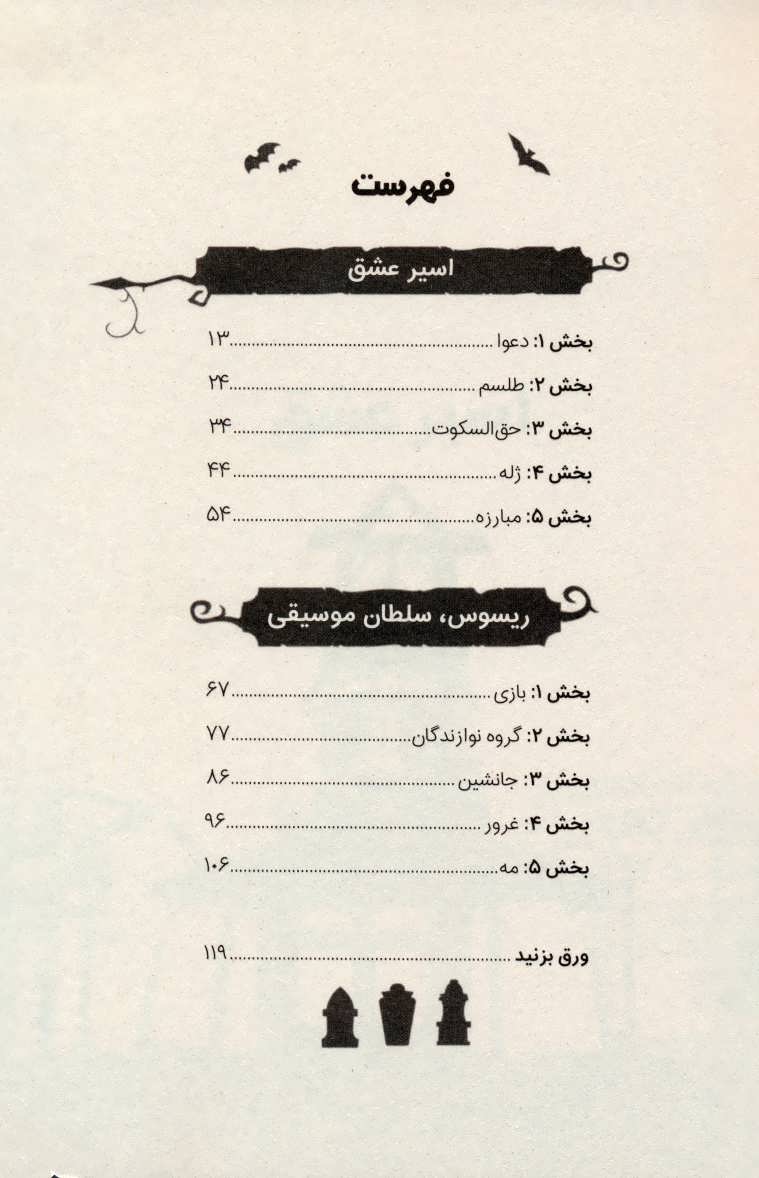 فهرست
اسیر عشق
بخش ۱: دعوا ........ ۱۳
بخش ۲: طلسم ........ ۲۴
بخش ۳: حق‌السکوت ........ ۳۴
بخش ۴: ژله ........ ۴۴
بخش ۵: مبارزه ........ ۵۴
ریسوس، سلطان موسیقی
بخش ۱: بازی ........ ۶۷
بخش ۲: گروه نوازندگان ........ ۷۷
بخش ۳: جانشین ........ ۸۶
بخش ۴: غرور ........ ۹۶
بخش ۵: مه ........ ۱۰۶
ورق بزنید ........ ۱۱۹